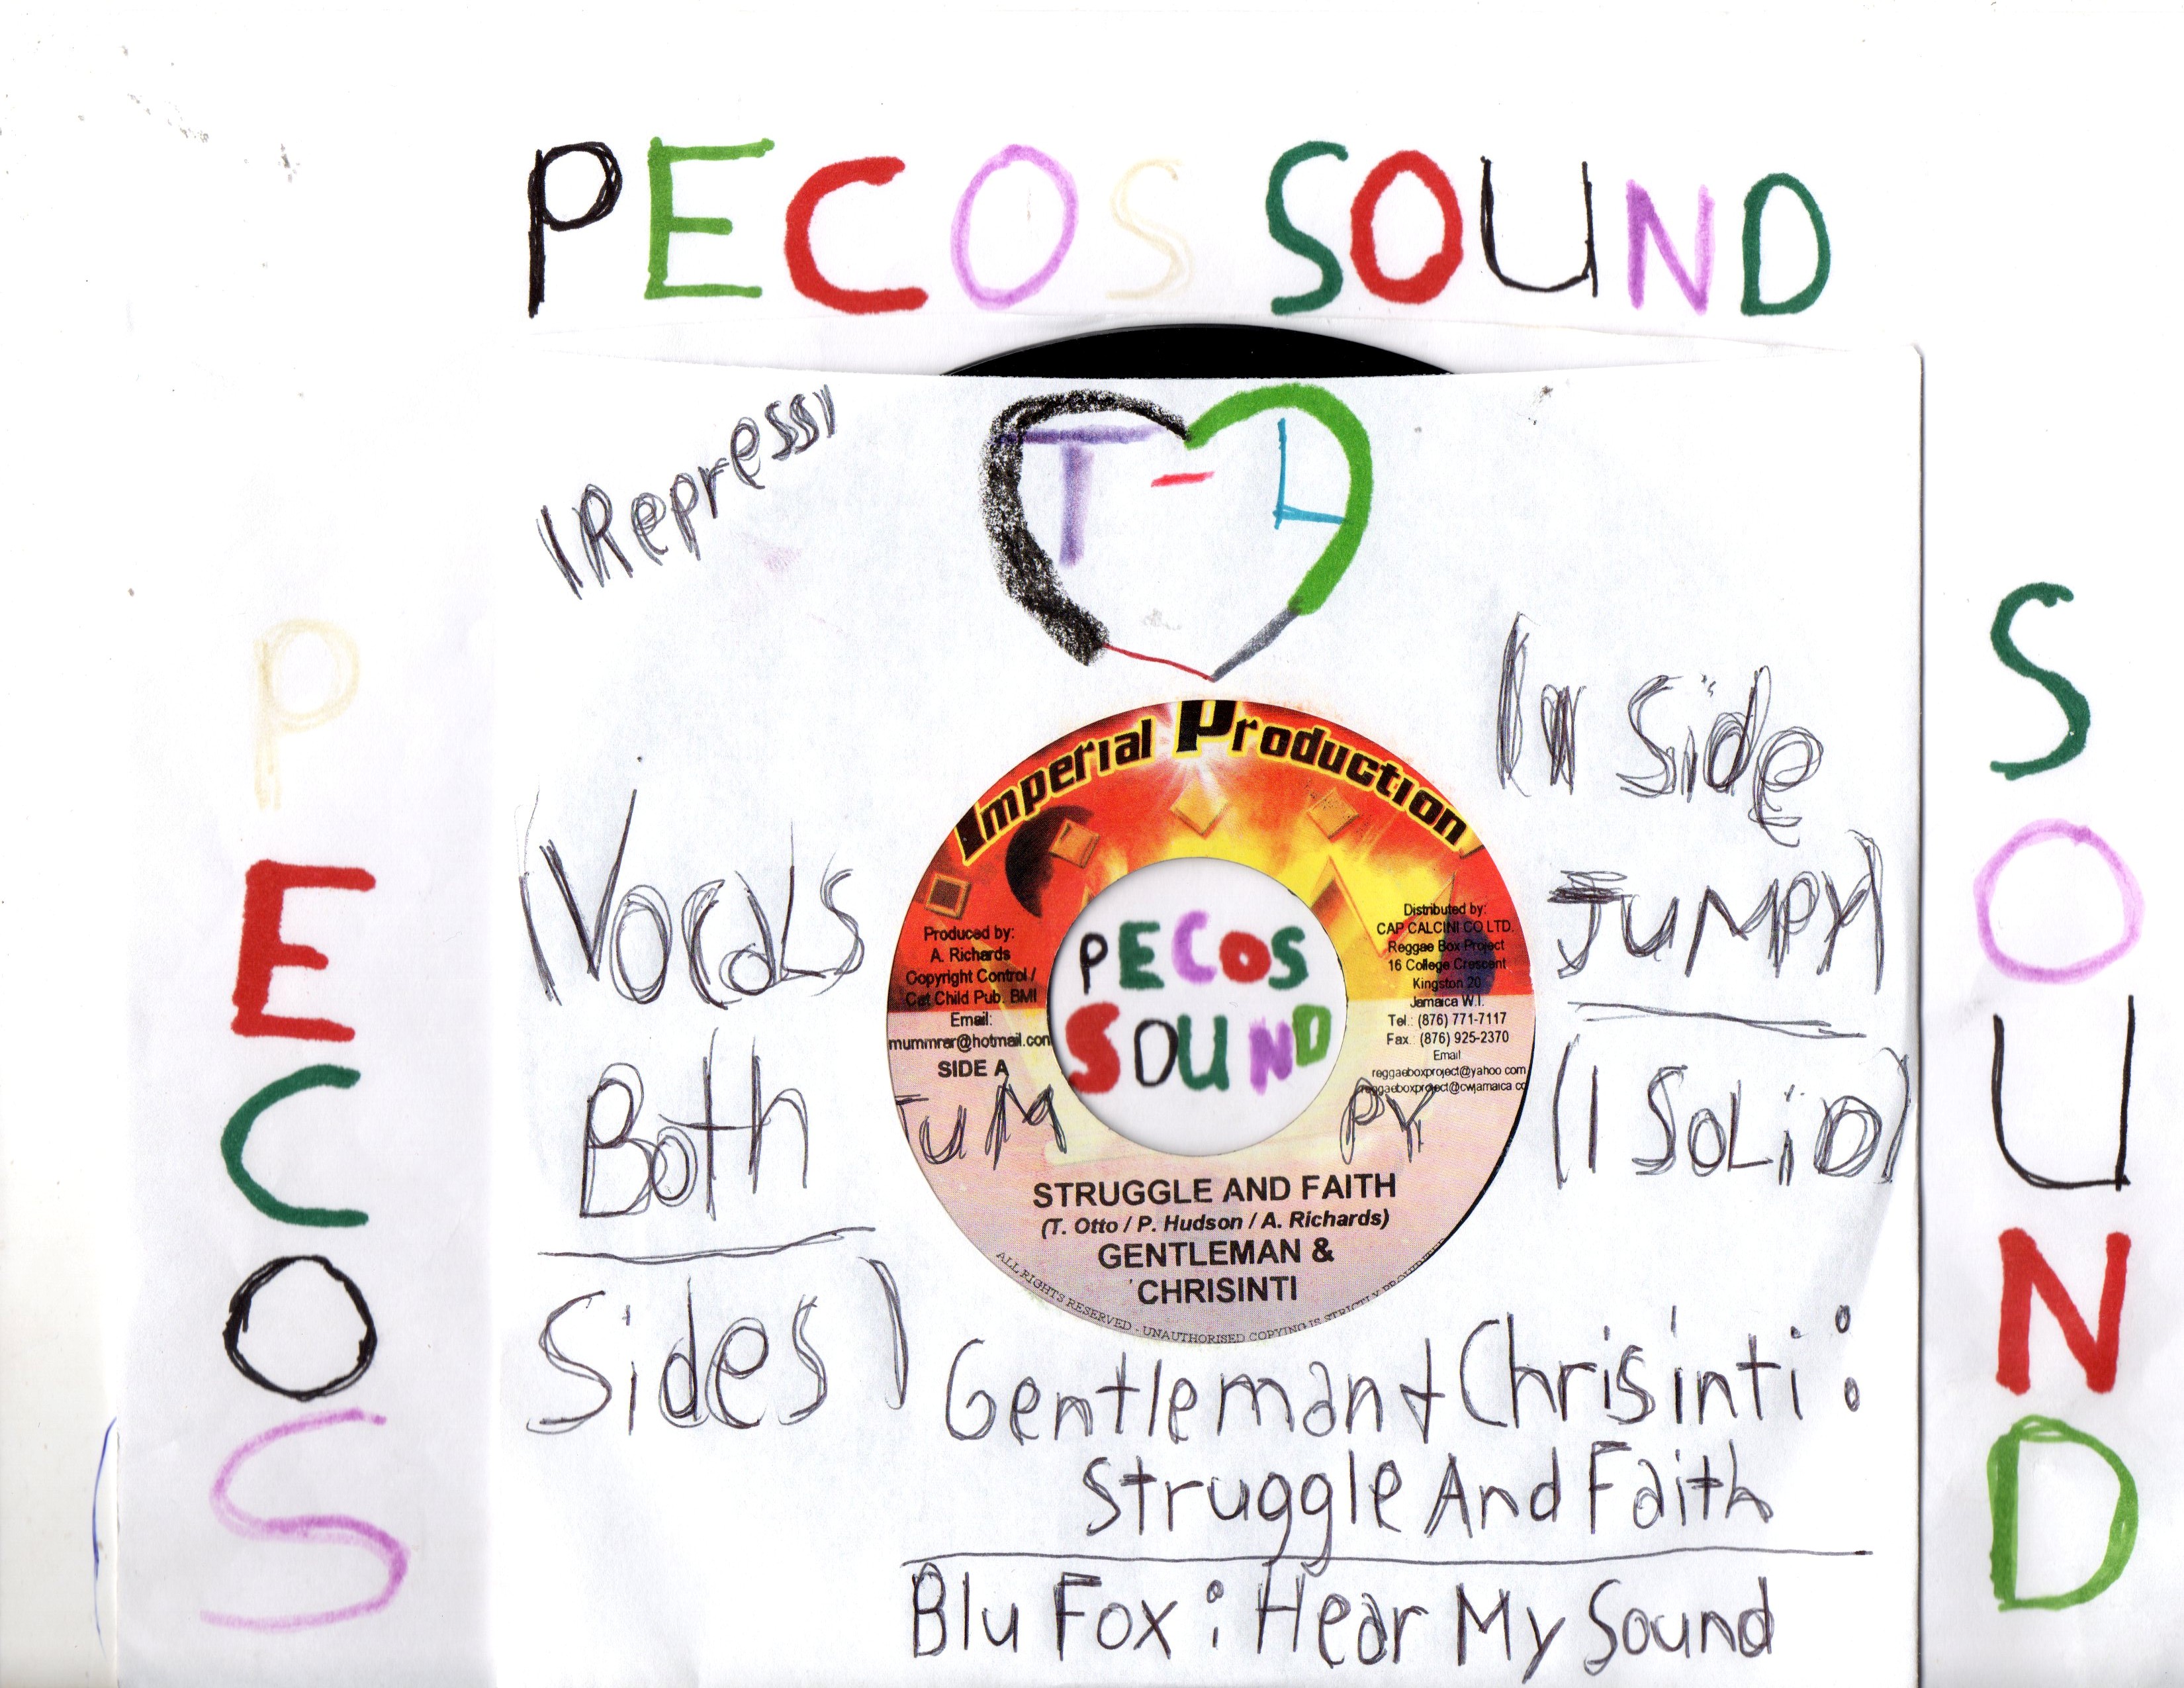 PECOS SOUND
(Repress)
T-L
PECOS
SOUND
(In Side
JUMPY)
(Vocals
Both
Sides)
(1 SOLiD)
Imperial Production
Produced by:
A. Richards
Copyright Control /
Cat Child Pub. BMI
Email:
mummrar@hotmail.com
SIDE A
PECOS
SOUND
Distributed by:
CAP CALCINI CO LTD.
Reggae Box Project
16 College Crescent
Kingston 20
Jamaica W.I.
Tel.: (876) 771-7117
Fax.: (876) 925-2370
Email
reggaeboxproject@yahoo com
reggaeboxproject@cwjamaica co
JUMPY
STRUGGLE AND FAITH
(T. Otto / P. Hudson / A. Richards)
GENTLEMAN &
CHRISINTI
ALL RIGHTS RESERVED - UNAUTHORISED COPYING IS STRICTLY PROHIBITED
Gentleman & Chrisinti :
Struggle And Faith
Blu Fox : Hear My Sound